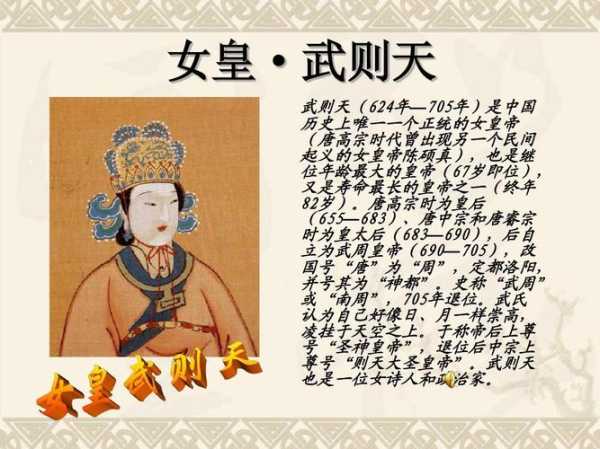 女皇·武则天
武则天（624年—705年）是中国
历史上唯一一个正统的女皇帝
（唐高宗时代曾出现另一个民间
起义的女皇帝陈硕真），也是继
位年龄最大的皇帝（67岁即位），
又是寿命最长的皇帝之一（终年
82岁）。唐高宗时为皇后
（655—683）、唐中宗和唐睿宗
时为皇太后（683—690），后自
立为武周皇帝（690—705），改
国号“唐”为“周”，定都洛阳，
并号其为“神都”。史称“武周”
或“南周”，705年退位。武氏
认为自己好像日、月一样崇高，
凌挂于天空之上。于称帝后上尊
号“圣神皇帝”，退位后中宗上
尊号“则天大圣皇帝”。武则天
也是一位女诗人和政治家。
女皇武则天